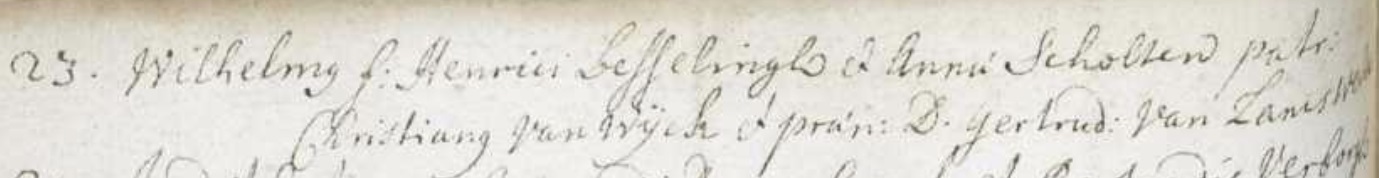 23. Wilhelmg f: Henrici Besselingh et Anna Scholten patr:
Christiang Van Wÿck et præn: D. gertrud: Van
Verborgh